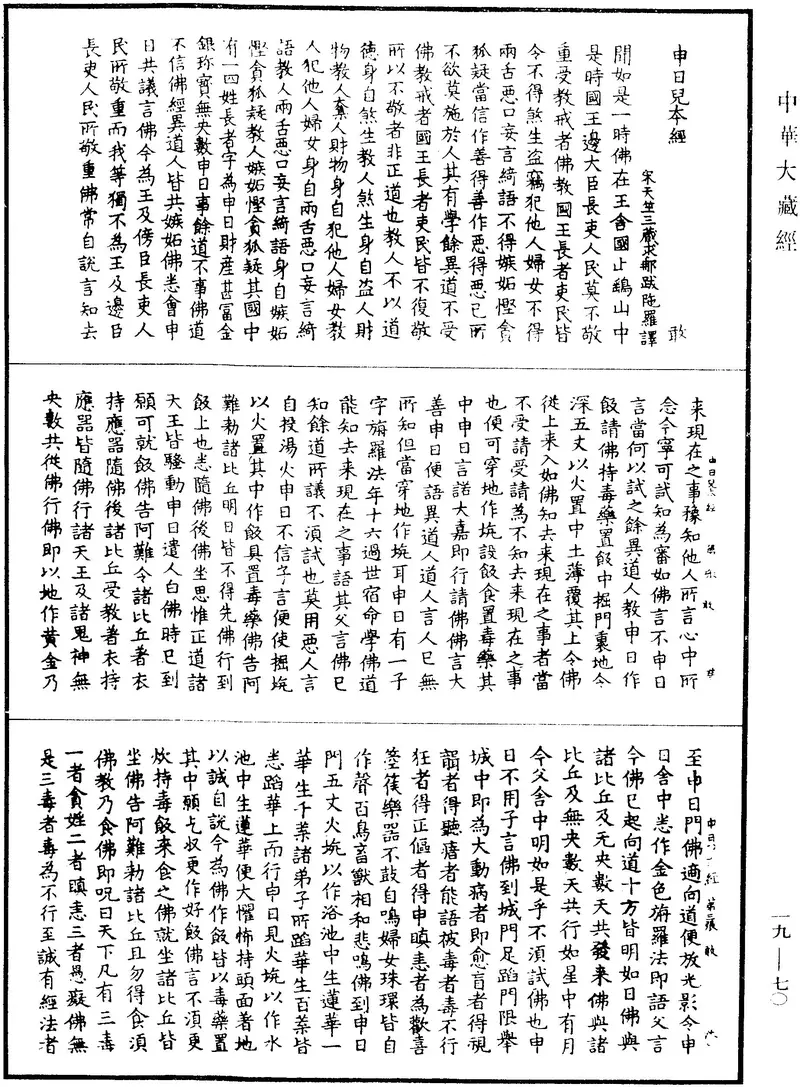 中華大藏經
一九—七〇
申日兒本經
敢
宋天竺三藏求那跋陁羅譯
聞如是一時佛在王舍國止鷄山中
是時國王邊大臣長吏人民莫不敬
重受教戒者佛教國王長者吏民皆
令不得煞生盜竊犯他人婦女不得
兩舌惡口妄言綺語不得嫉妬慳貪
狐疑當信作善得善作惡得惡已所
不欲莫施於人其有學餘異道不受
佛教戒者國王長者吏民皆不復敬
所以不敬者非正道也教人不以道
德身自煞生教人煞生身自盜人財
物教人棄人財物身自犯他人婦女教
人犯他人婦女身自兩舌惡口妄言綺
語教人兩舌惡口妄言綺語身自嫉妬
慳貪狐疑教人嫉妬慳貪狐疑其國中
有一四姓長者字為申日財產甚冨金
銀珎寶無央數申日事餘道不事佛道
不信佛經異道人皆共嫉妬佛悉會申
日共議言佛今為王及傍臣長吏人
民所敬重而我等獨不為王及邊臣
長吏人民所敬重佛常自說言知去
来現在之事豫知他人所言心中所
念今寧可試知為審如佛言不申日
言當何以試之餘異道人教申日作
飯請佛持毒藥置飯中掘門裏地令
深五丈以火置中土薄覆其上令佛
從上来入如佛知去来現在之事者當
不受請受請為不知去来現在之事
也便可穿地作垸設飯食置毒藥其
中申日言諾大嘉即行請佛佛言大
善申日便語異道人道人言人巳無
所知但當穿地作垸耳申日有一子
字旃羅法年十六過世宿命學佛道
能知去来現在之事語其父言佛巳
知餘道所議不須試也莫用惡人言
自投湯火申日不信子言便使掘垸
以火置其中作飯具置毒藥佛告阿
難勅諸比丘明日皆不得先佛行到
飯上也悉隨佛後佛坐思惟正道諸
天王皆騷動申日遣人白佛時巳到
願可就飯佛告阿難令諸比丘著衣
持應器隨佛後諸比丘受教著衣持
應器皆隨佛行諸天王及諸鬼神無
央數共從佛行佛即以地作黃金乃
至申日門佛適向道便放光影令申
日舍中悉作金色旃羅法即語父言
今佛巳起向道十方皆明如日佛與
諸比丘及无央數天共發来佛與諸
比丘及無央數天共行如星中有月
今父舍中明如是乎不須試佛也申
日不用子言佛到城門足蹈門限舉
城中即為大動病者即愈盲者得視
聾者得聽瘖者能語被毒者毒不行
狂者得正傴者得申瞋恚者為歡喜
箜篌樂器不鼓自鳴婦女珠環皆自
作聲百鳥畜獸相和悲鳴佛到申日
門五丈火垸以作浴池中生蓮華一
華生千葉諸弟子所蹈華生百葉皆
悉蹈華上而行申日見火垸以作水
池中生蓮華便大懼怖持頭面著地
以誠自說今為佛作飯皆以毒藥置
其中願乞叔更作好飯佛言不須更
炊持毒飯来食之佛就坐諸比丘皆
坐佛告阿難勅諸比丘且勿得食須
佛教乃食佛即呪曰天下凡有三毒
一者貪婬二者瞋恚三者愚癡佛無
是三毒者毒為不行至誠有經法者